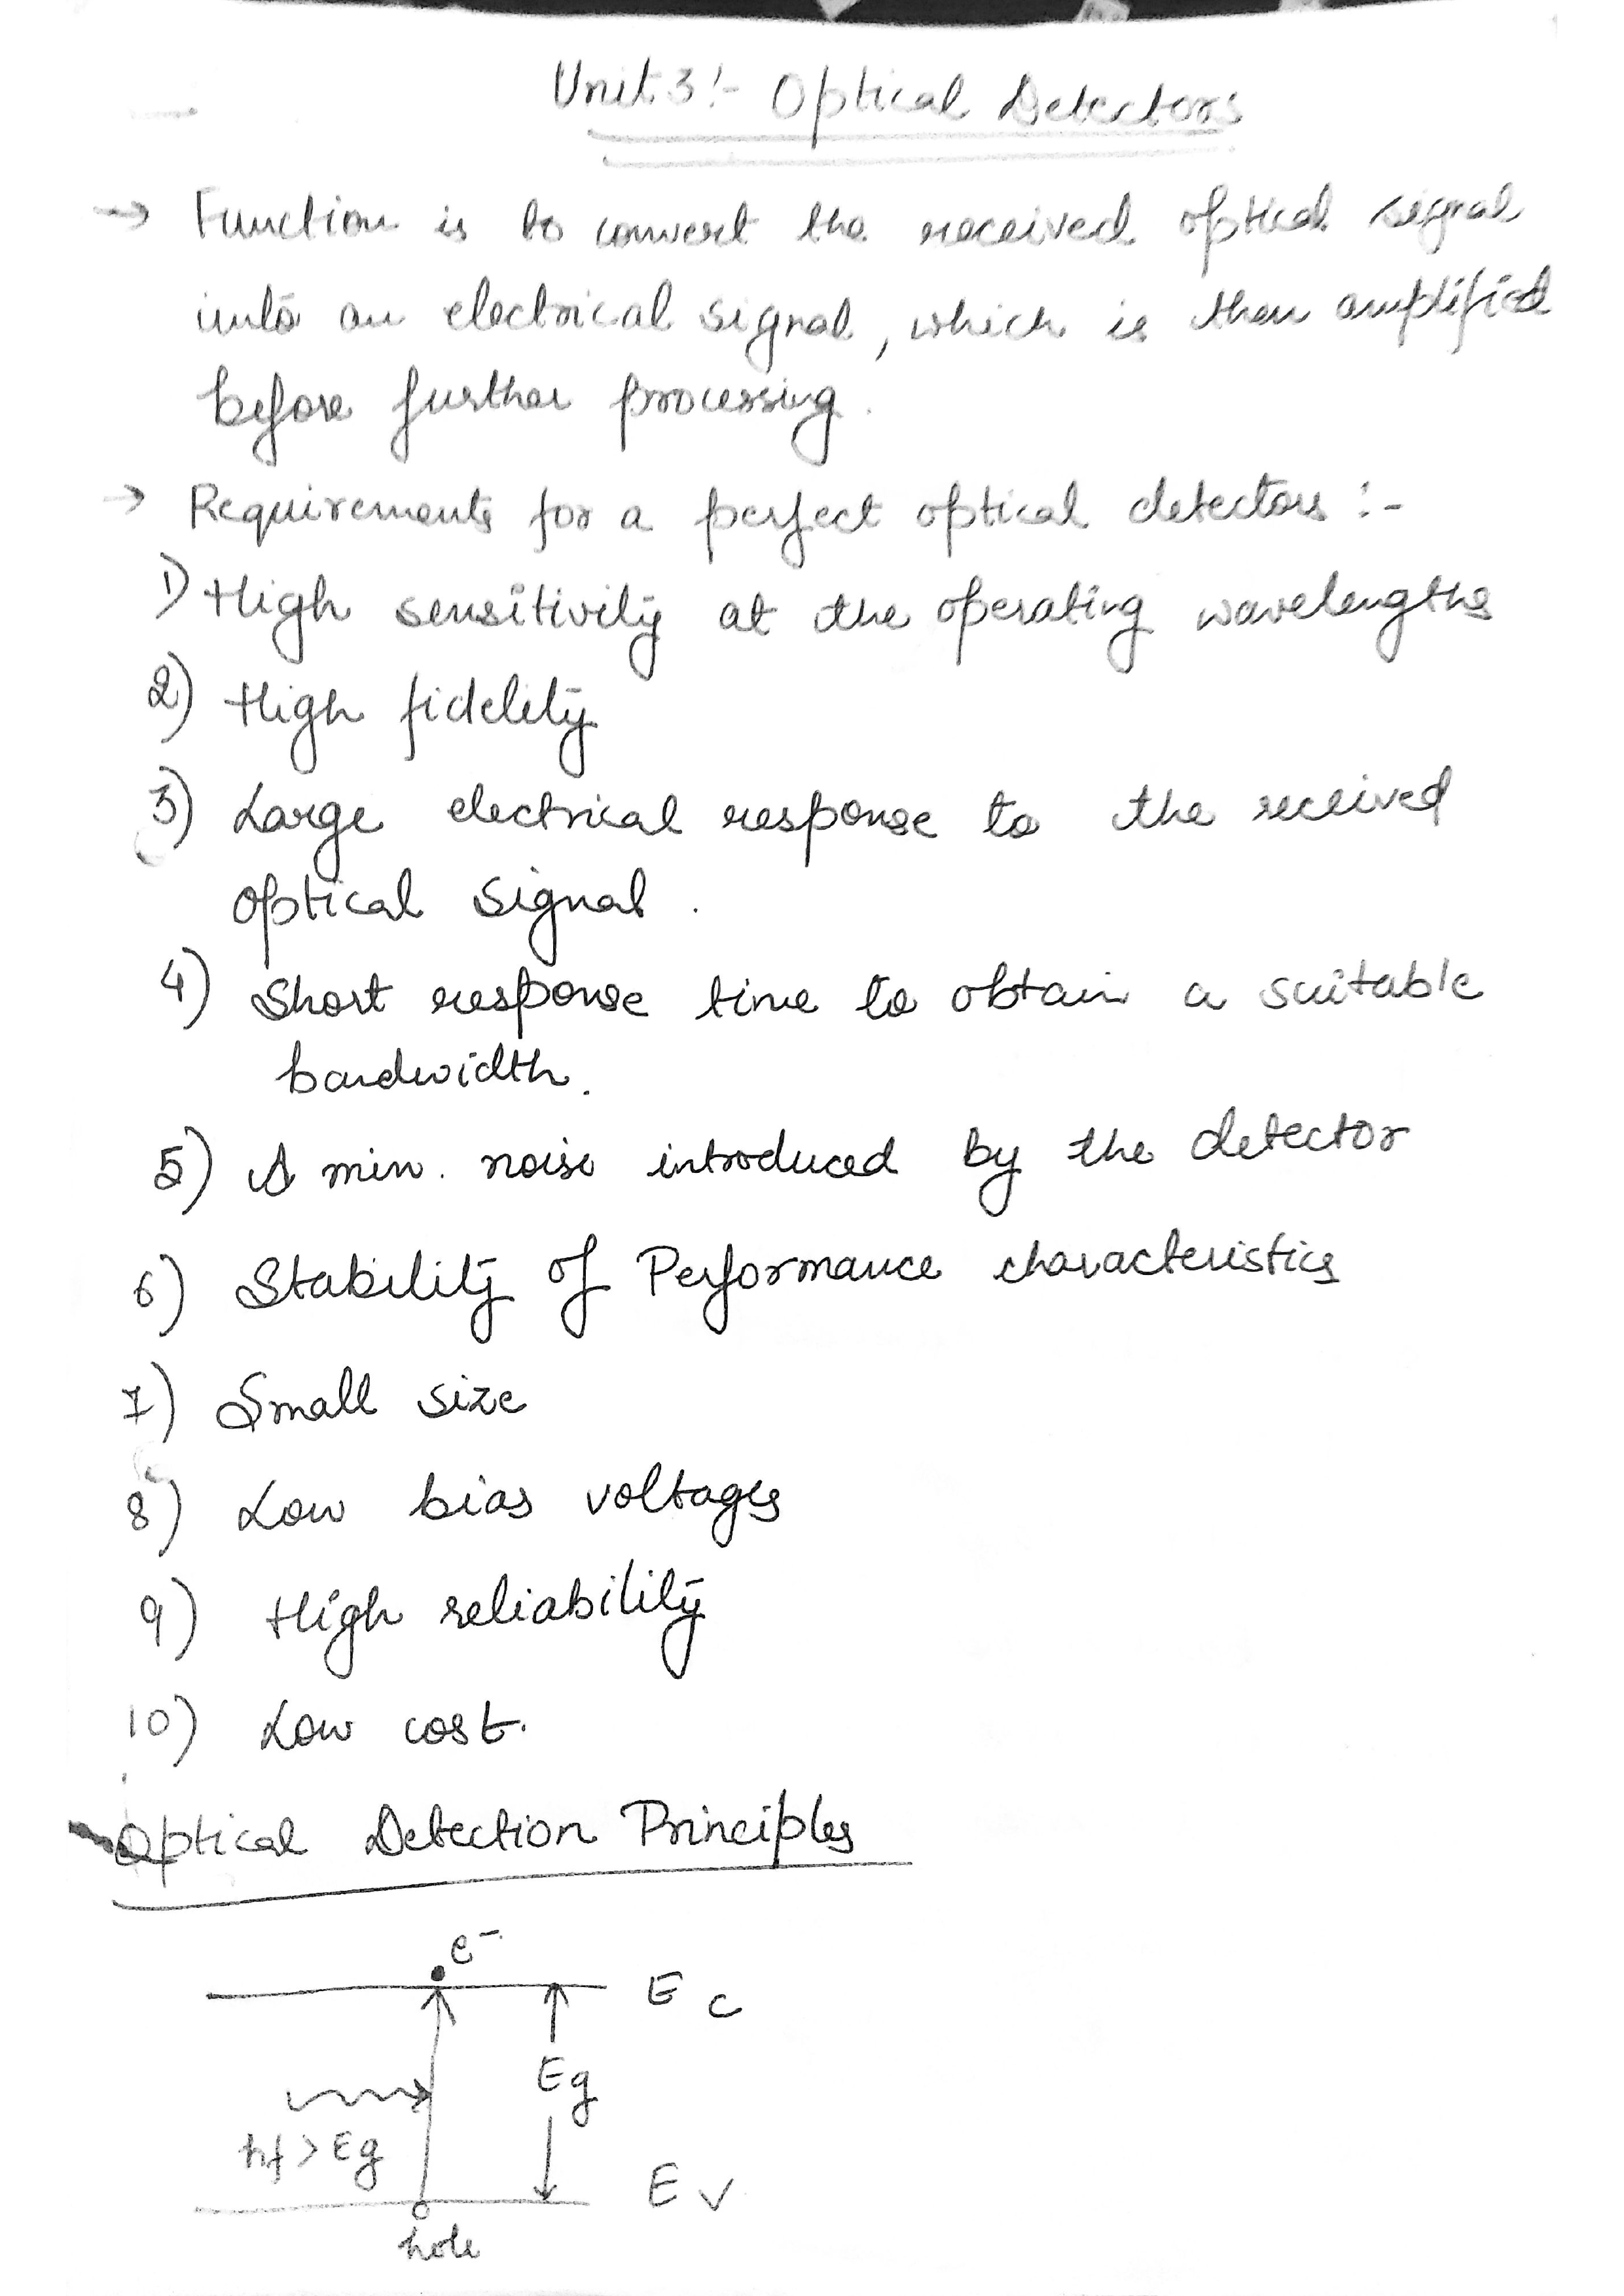 Unit 3:- Optical Detectors
→ Function is to convert the received optical signal
into an electrical signal, which is then amplified
before further processing.
→ Requirements for a perfect optical detectors :-
1) High sensitivity at the operating wavelengths
2) High fidelity
3) Large electrical response to the received
optical signal.
4) Short response time to obtain a suitable
bandwidth.
5) A min. noise introduced by the detector
6) Stability of Performance characteristics
7) Small size
8) Low bias voltages
9) High reliability
10) Low cost.
Optical Detection Principles
e-
Ec
Eg
hf > Eg
Ev
hole